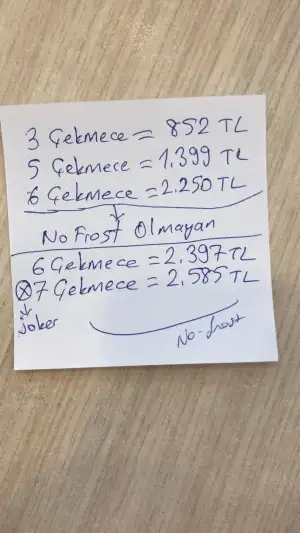 3 Çekmece = 852 TL
5 Çekmece = 1.399 TL
6 Çekmece = 2.250 TL
No Frost Olmayan
6 Çekmece = 2.397 TL
⊗7 Çekmece = 2.585 TL
Joker
No-frost